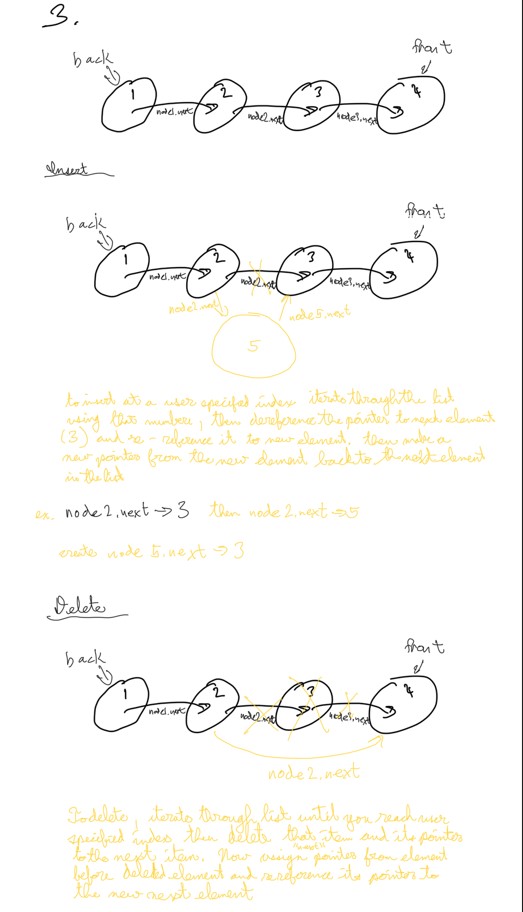 3.
back front
1 2 3 4
node1.next node2.next node3.next
Insert
back front
1 2 3 4
node1.next node2.next node3.next
node2.next node5.next
5
to insert at a user specified index iterate through the list
using that number, then dereference the pointer to next element
(3) and re-reference it to new element. then make a
new pointer from the new element back to the next element
in the list
ex. node2.next -> 3 then node2.next -> 5
create node 5.next -> 3
Delete
back front
1 2 3 4
node1.next node2.next node3.next
node2.next
To delete, iterate through list until you reach user
specified index then delete that item and its pointer
to the next item. Now assign pointer from element
before deleted element and rereference its pointer to
the new next element